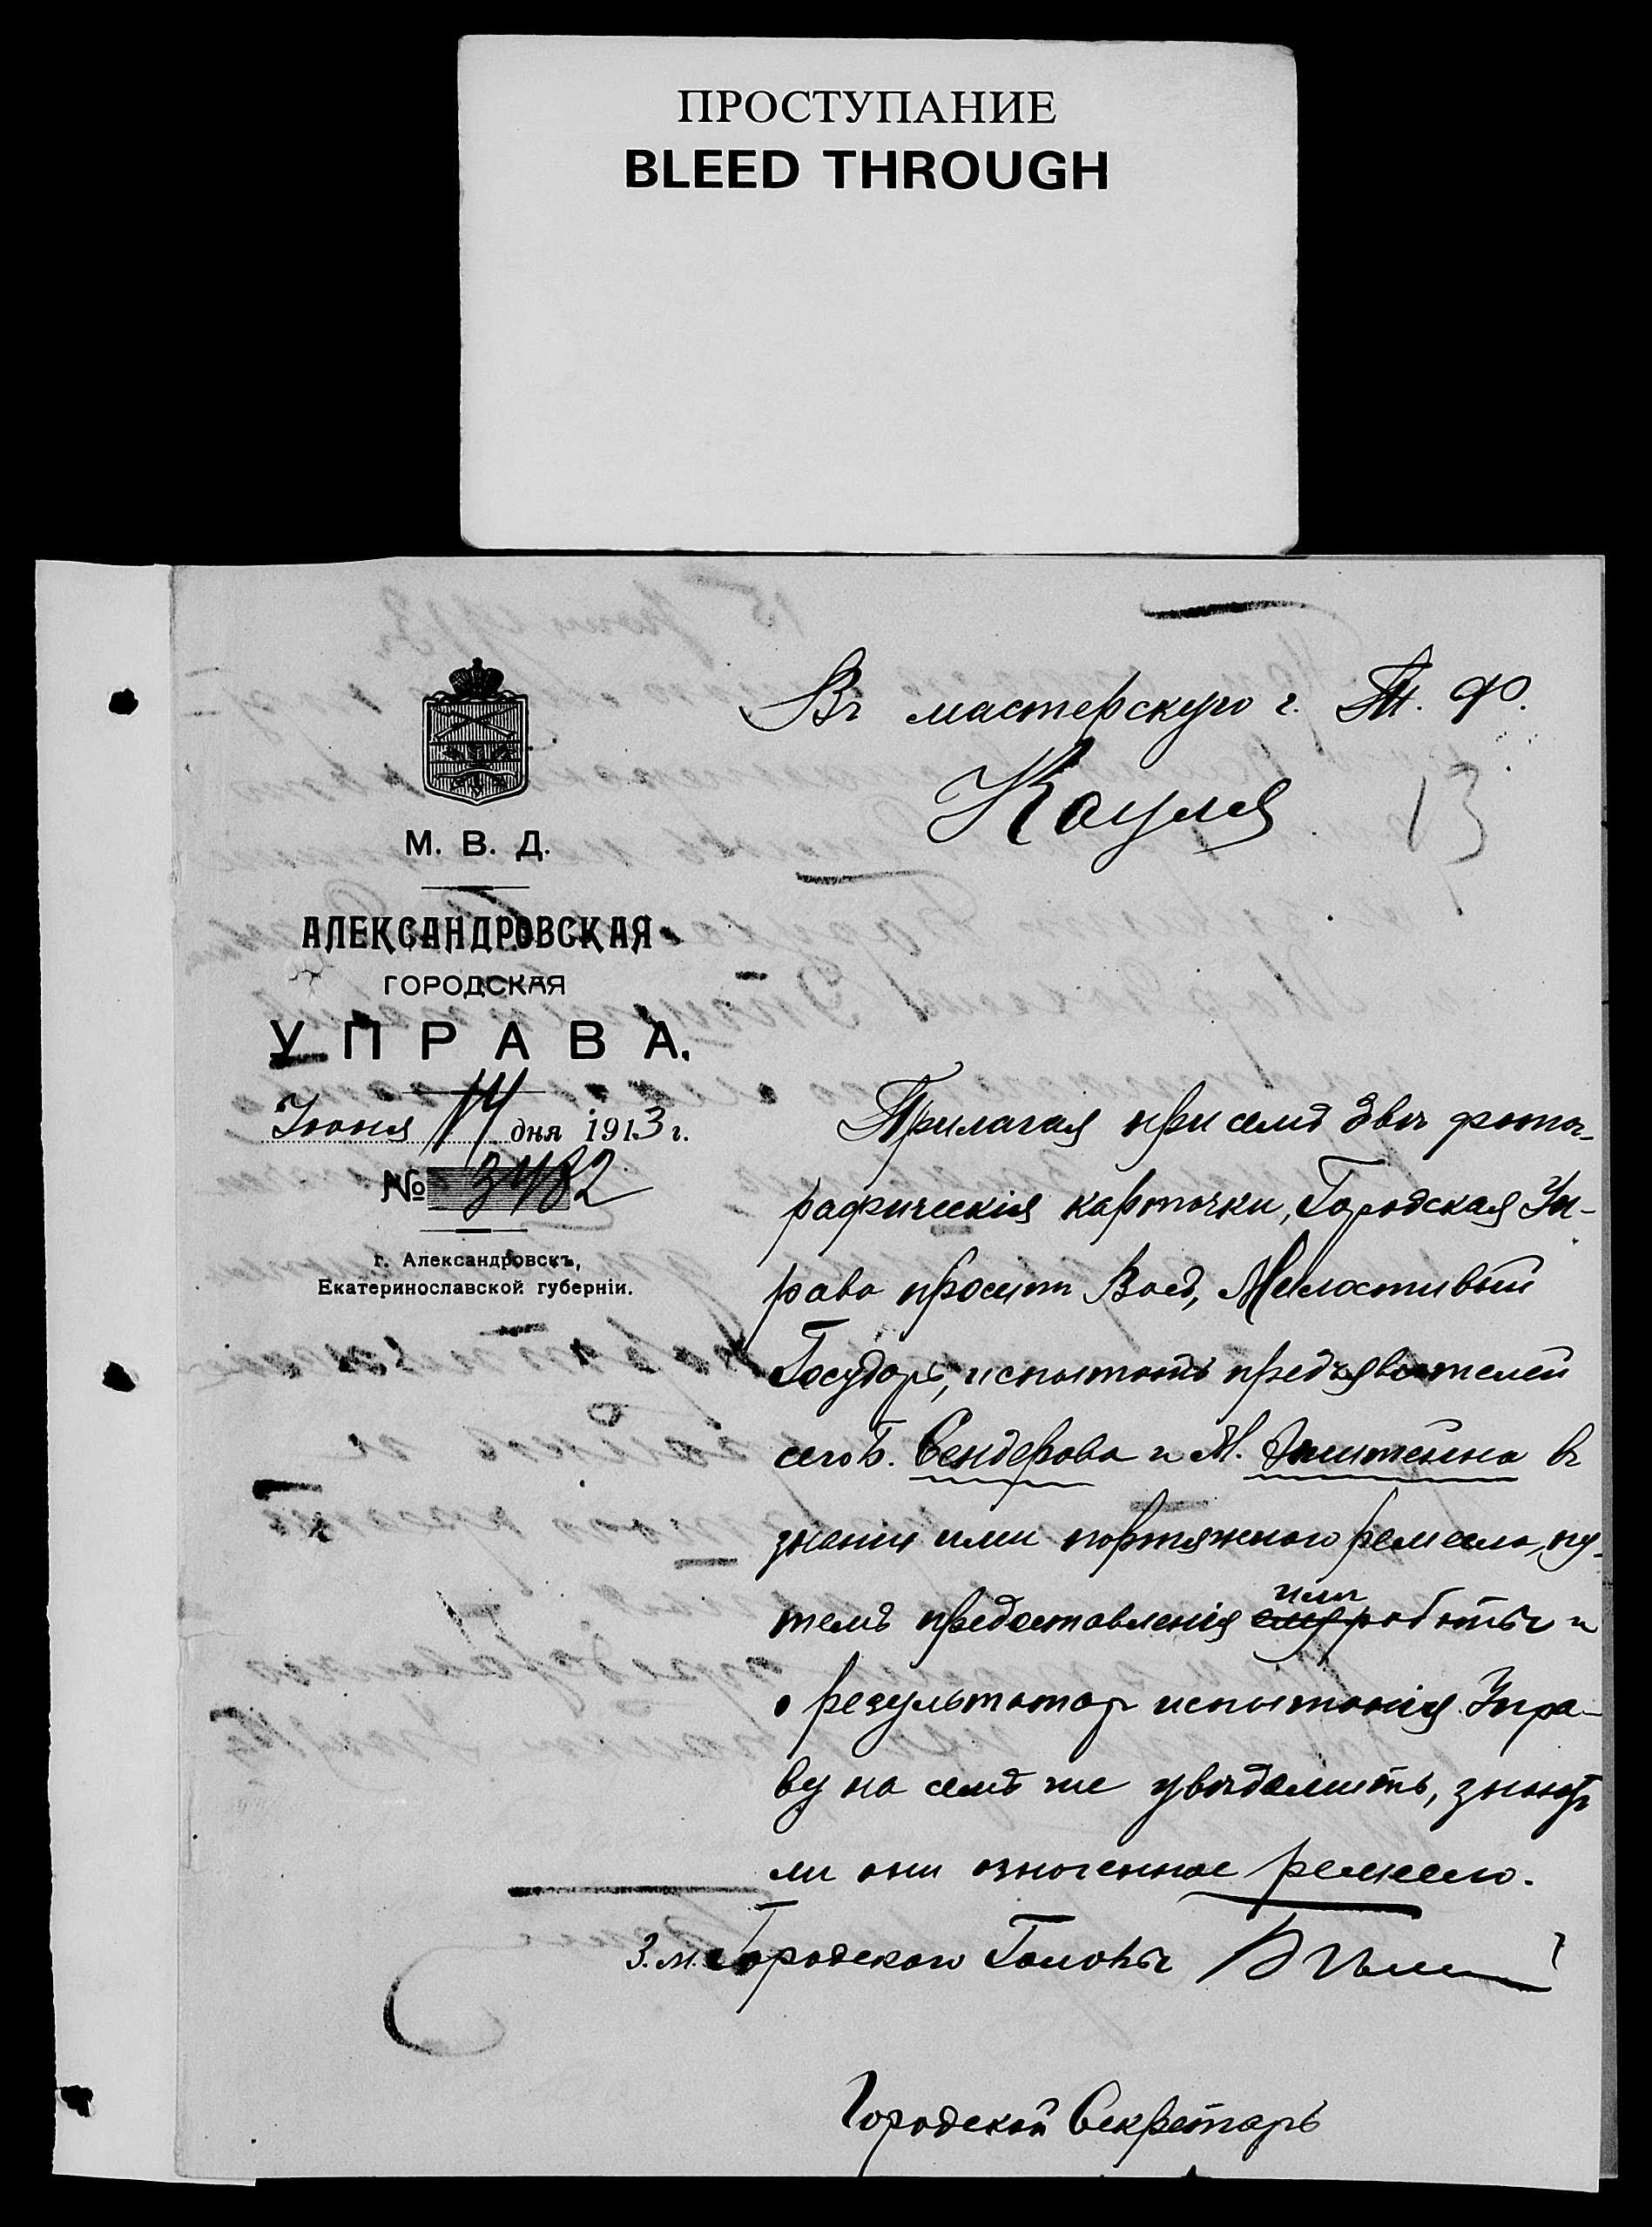 ПРОСТУПАНИЕ
BLEED THROUGH
М. В. Д.
АЛЕКСАНДРОВСКАЯ
ГОРОДСКАЯ
УПРАВА.
Іюня 14 дня 1913 г.
№ 3482
г. Александровскъ,
Екатеринославской губерніи.
Въ мастерскую г. П. Ф.
Кауля
13
Прилагая при семъ двѣ фотог-
рафическія карточки, Городская Уп-
рава проситъ Васъ, Милостивый
Государь, испытать предъявителей
сего Б. Сендерова и М. Эпштейна въ
знаніи ими портяжного ремесла, пу-
темъ предоставленія имъ работы и
о результатахъ испытанія Упра-
ву на семъ же увѣдомить, знаютъ
ли они означенное ремесло.
З. м. Городского Головы
Городской Секретарь